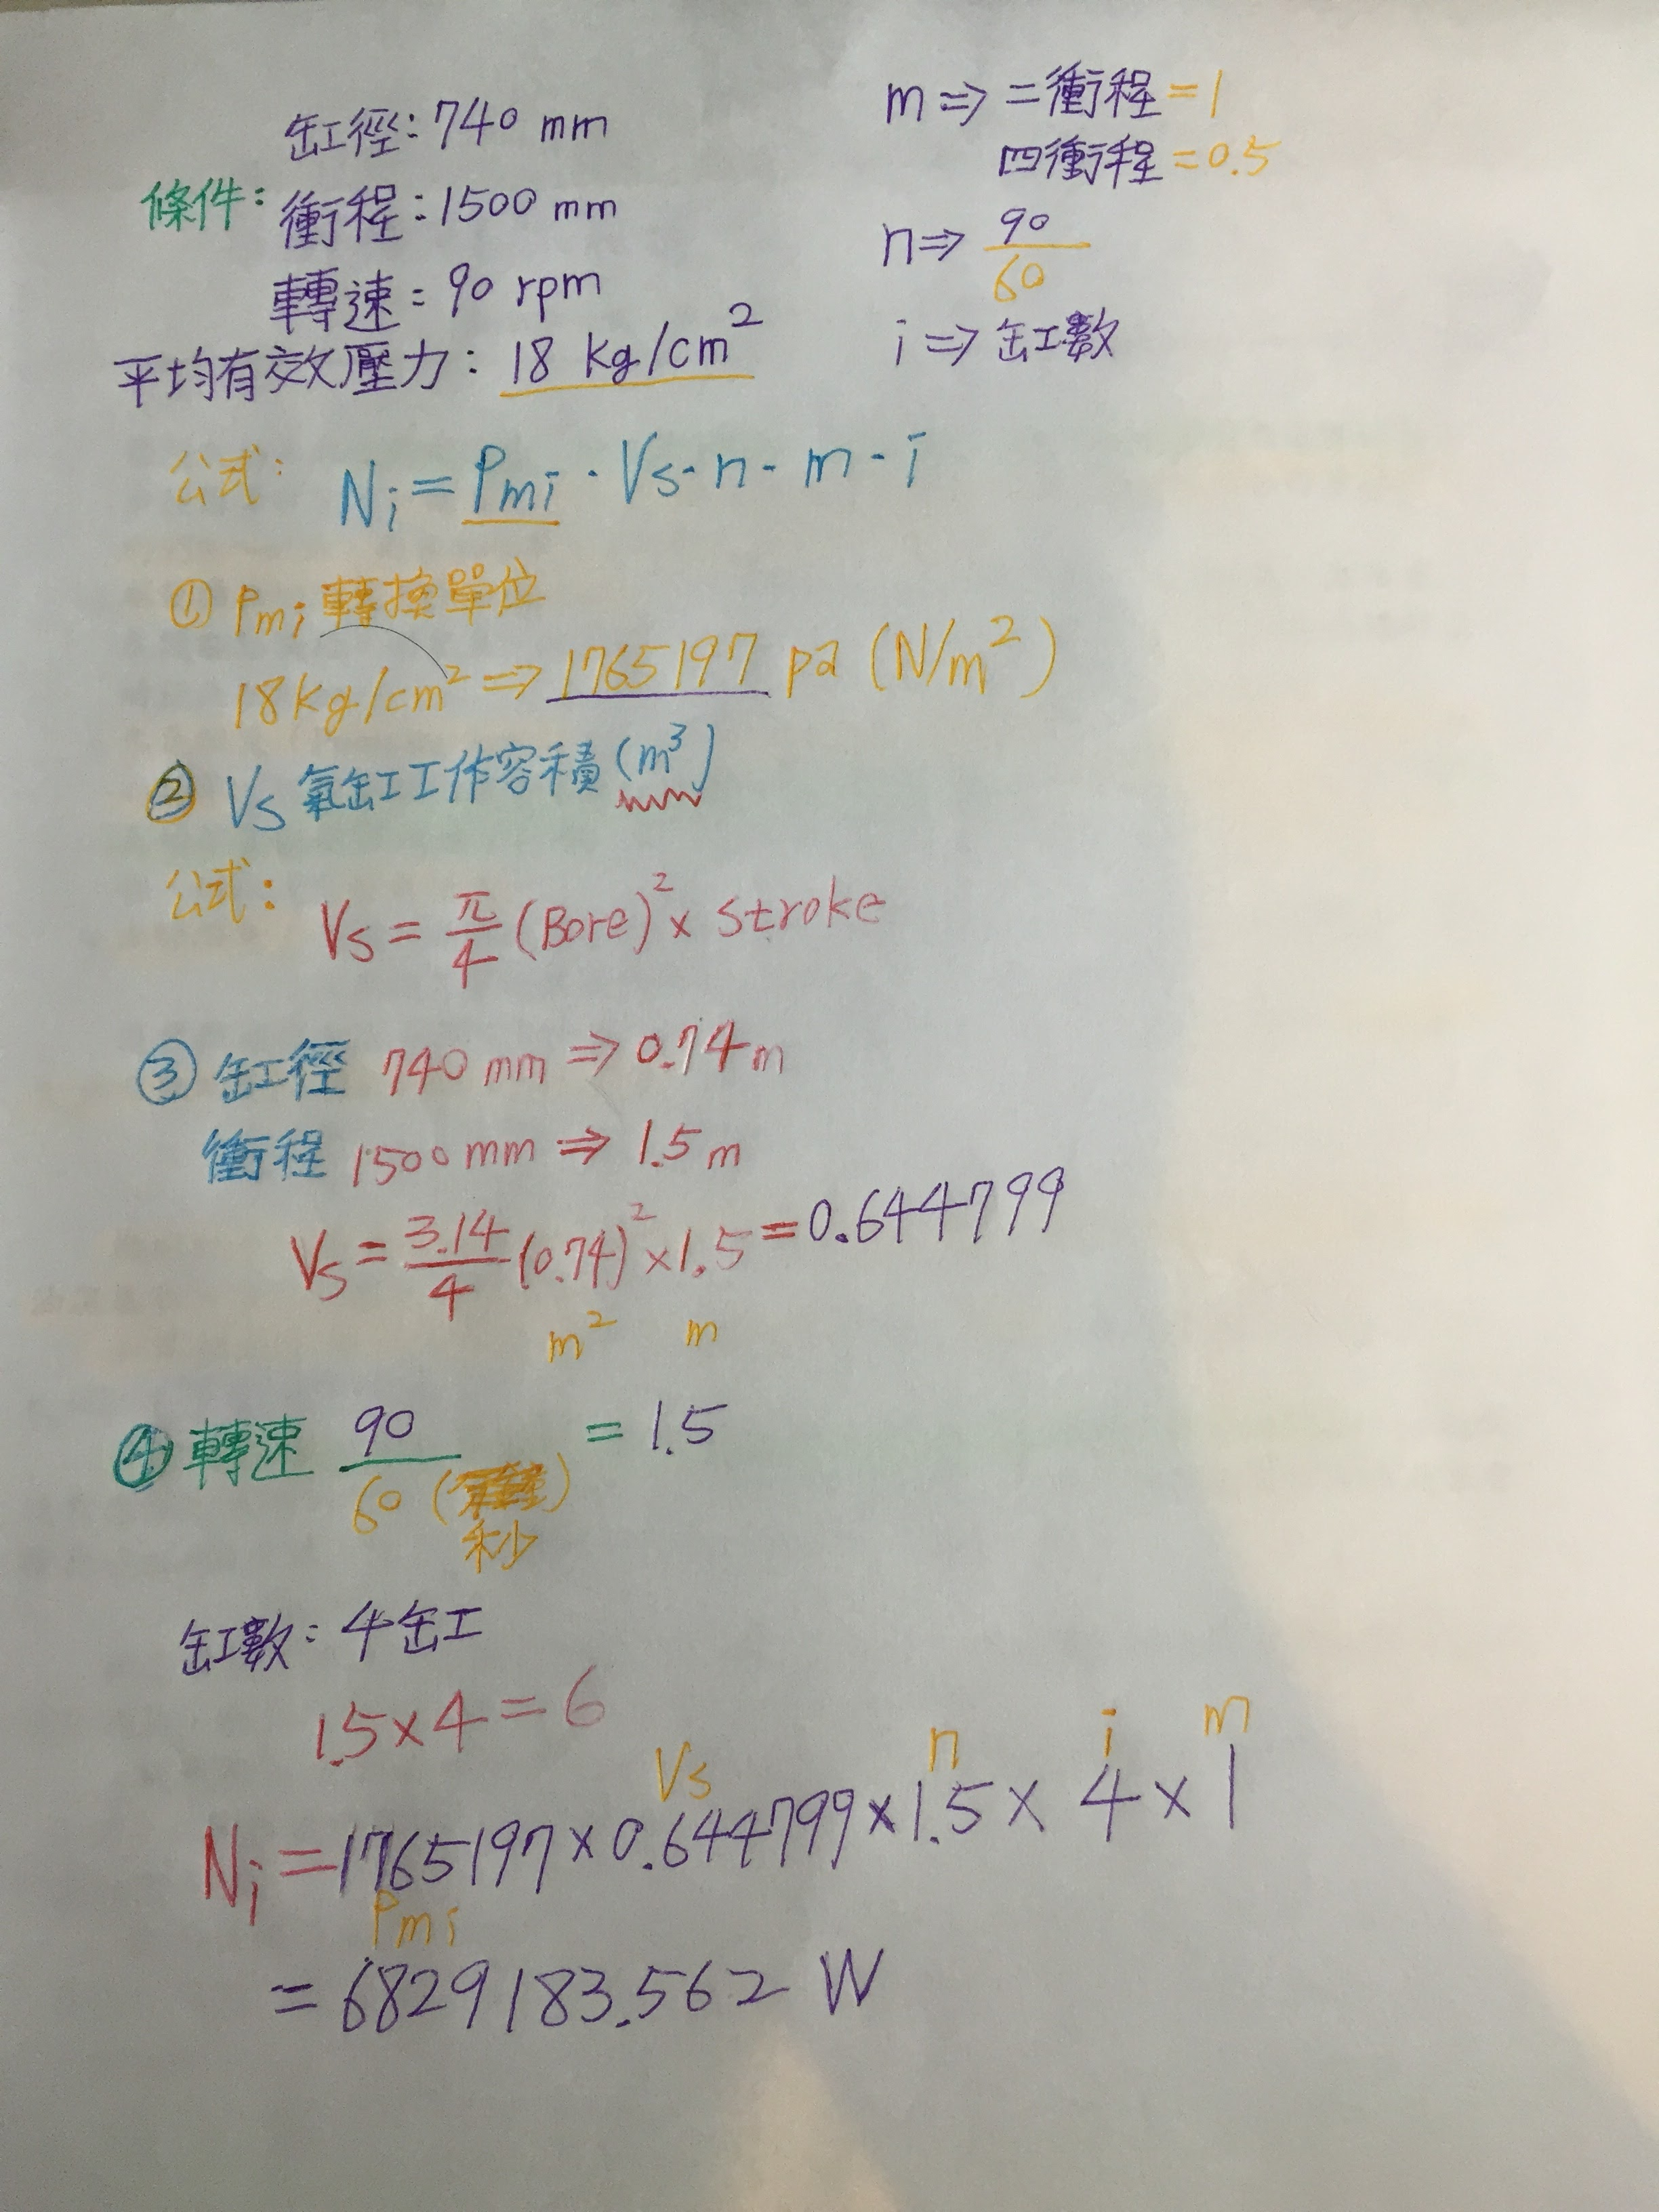 缸徑:740 mm
條件:
衝程:1500 mm
轉速:90 rpm
平均有效壓力:18 kg/cm²
m⇒二衝程=1
四衝程=0.5
n⇒90/60
i⇒缸數
公式: Ni=Pmi·Vs·n·m·i
① Pmi 轉換單位
18kg/cm²⇒1765197 pa (N/m²)
② Vs 氣缸工作容積(m³)
公式: Vs=π/4(Bore)²×stroke
③ 缸徑 740 mm⇒0.74m
衝程 1500mm⇒1.5m
Vs=3.14/4(0.74)²×1.5=0.644799
m² m
④ 轉速 90/60 ( ) =1.5
秒
缸數:4缸
1.5×4=6
Vs n i m
Ni=1765197×0.644799×1.5×4×1
Pmi
=6829183.562 W